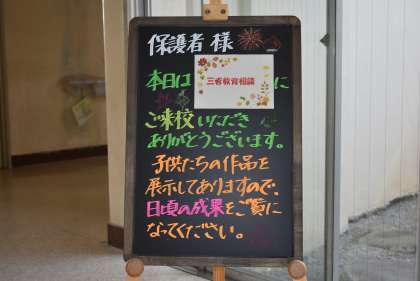 保護者 様
本日は 三者教育相談 に
ご来校いただき
ありがとうございます。
子供たちの作品を
展示してありますので、
日頃の成果をご覧に
なってください。